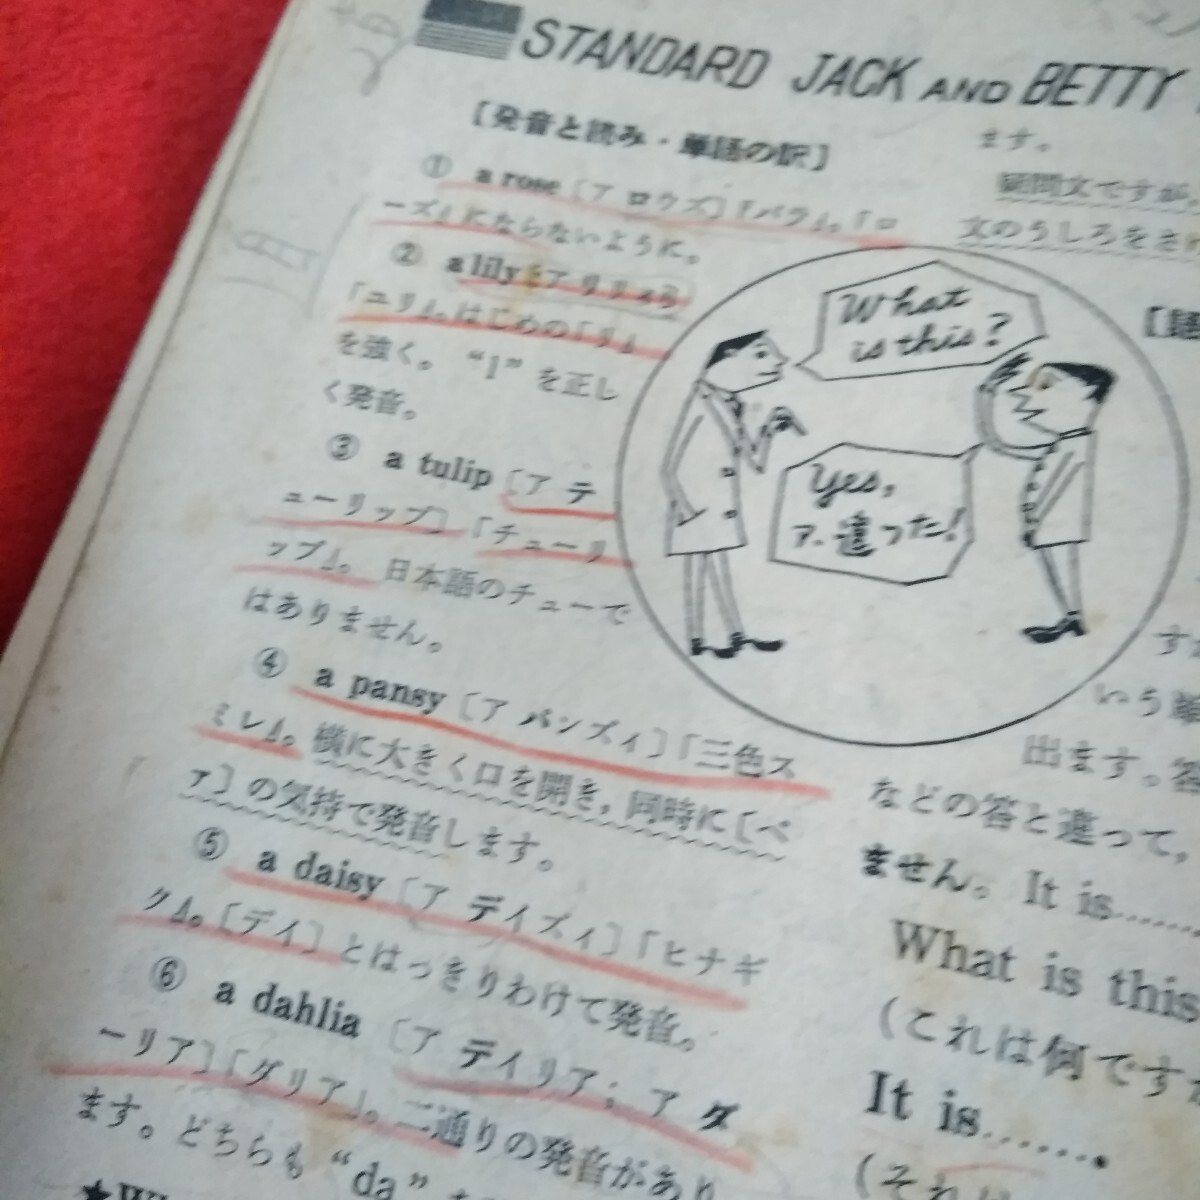 STANDARD JACK AND BETTY
[発音と読み・単語の訳]
① a rose〔ア ロウズ〕「バラ」。「ロ
ーズ」にならないように。
② a lily〔ア リリィ〕
「ユリ」。はじめの「リ」
を強く。“l”を正し
く発音。
③ a tulip〔ア テ
ューリップ〕「チューリ
ップ」。日本語のチューで
はありません。
④ a pansy〔ア パンズィ〕「三色ス
ミレ」。横に大きく口を開き，同時に〔ペ
ァ〕の気持で発音します。
⑤ a daisy〔ア デイズィ〕「ヒナギ
ク」。〔デイ〕とはっきりわけて発音。
⑥ a dahlia〔ア デイリア；ア ダ
ーリア〕「ダリア」。二通りの発音があり
ます。どちらも “da”
What
is this?
Yes,
ア、違った!
ます。
疑問文ですが,
文のうしろをさ
いう
出ます。答
などの答と違って,
ません。It is........
What is this
(これは何です
It is.......
(それは